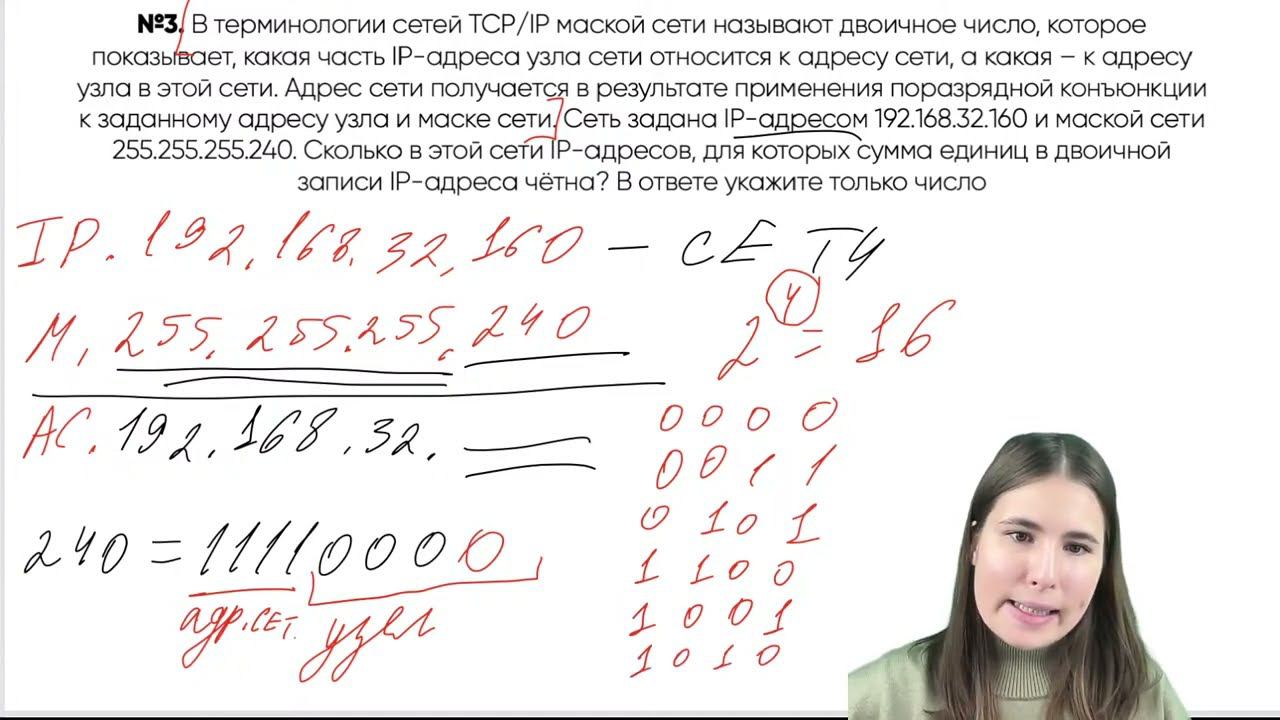 №3. В терминологии сетей TCP/IP маской сети называют двоичное число, которое
показывает, какая часть IP-адреса узла сети относится к адресу сети, а какая – к адресу
узла в этой сети. Адрес сети получается в результате применения поразрядной конъюнкции
к заданному адресу узла и маске сети. Сеть задана IP-адресом 192.168.32.160 и маской сети
255.255.255.240. Сколько в этой сети IP-адресов, для которых сумма единиц в двоичной
записи IP-адреса чётна? В ответе укажите только число
IP. 192.168.32.160 – СЕТИ
М. 255.255.255.240
2^4 = 16
АС. 192.168.32.
0 0 0 0
0 0 1 1
0 1 0 1
240 = 11110000
1 1 0 0
адр.сет. узел
1 0 0 1
1 0 1 0